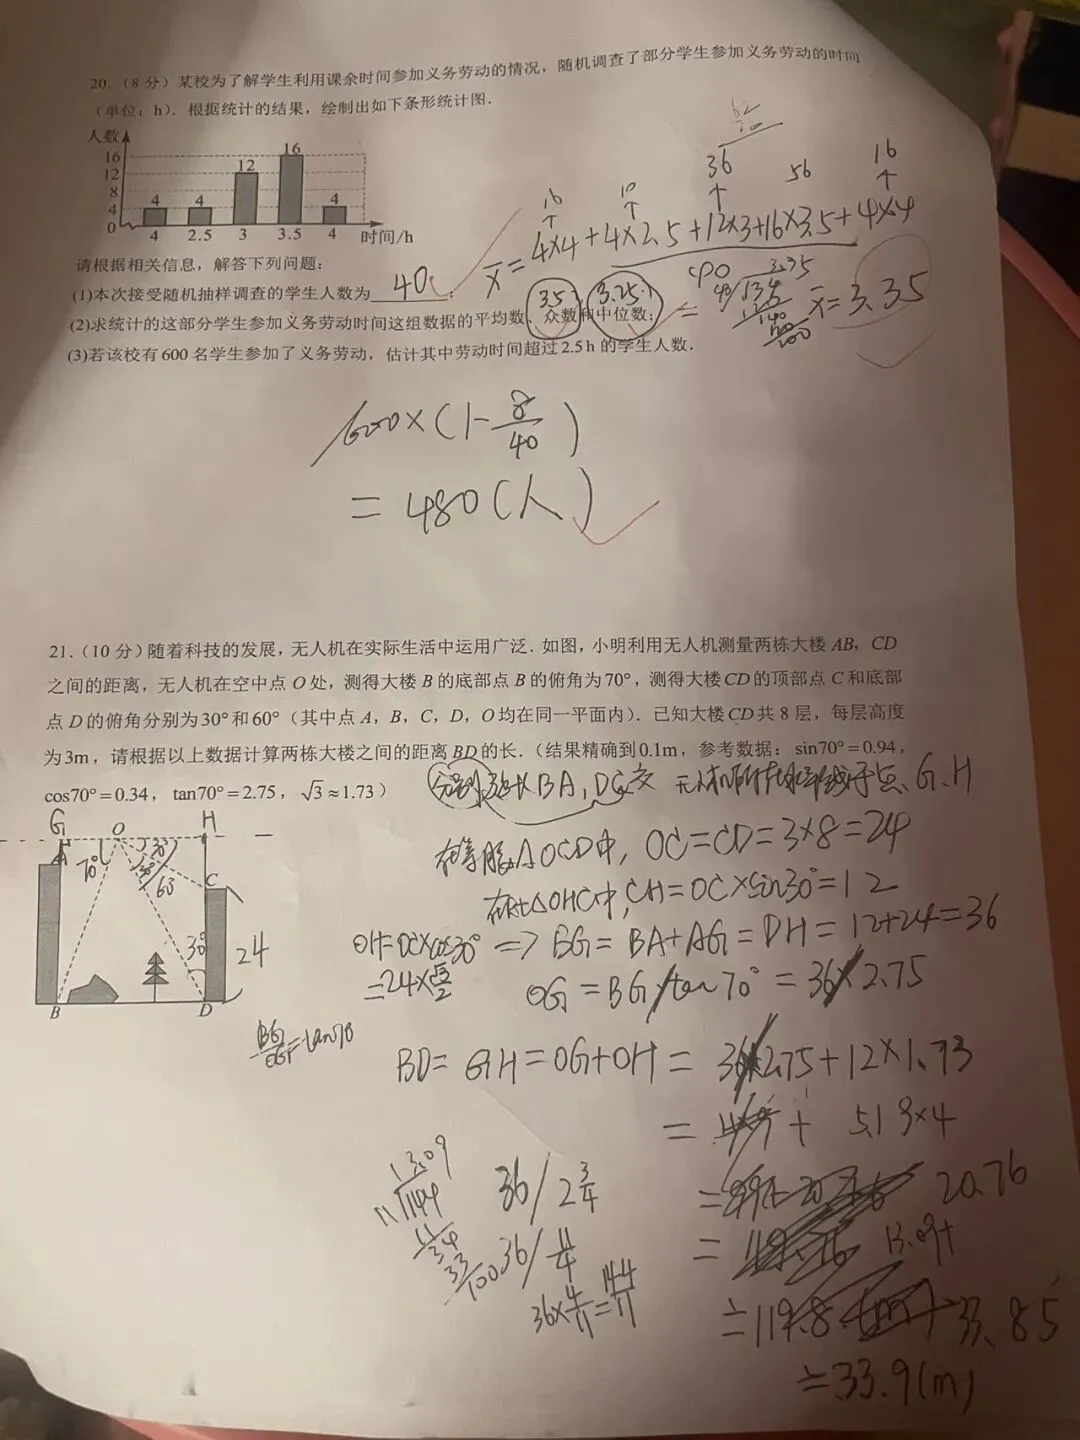 20.（8 分）某校为了解学生利用课余时间参加义务劳动的情况，随机调查了部分学生参加义务劳动的时间
（单位：h）. 根据统计的结果，绘制出如下条形统计图.
人数
16
12
8
4
0
4
4
12
16
4
4
2.5
3
3.5
4
时间/h
16
10
36
56
16
x̄=4×4+4×2.5+12×3+16×3.5+4×4
请根据相关信息，解答下列问题：
(1)本次接受随机抽样调查的学生人数为 40 ；
3.5
3.25
(2)求统计的这部分学生参加义务劳动时间这组数据的平均数、众数和中位数；
= x̄=3.35
(3)若该校有 600 名学生参加了义务劳动，估计其中劳动时间超过 2.5 h 的学生人数.
600×(1-8/40)
=480(人)
21.（10 分）随着科技的发展，无人机在实际生活中运用广泛. 如图，小明利用无人机测量两栋大楼 AB，CD
之间的距离，无人机在空中点 O 处，测得大楼 B 的底部点 B 的俯角为 70°，测得大楼 CD 的顶部点 C 和底部
点 D 的俯角分别为 30° 和 60°（其中点 A，B，C，D，O 均在同一平面内）. 已知大楼 CD 共 8 层，每层高度
为 3m，请根据以上数据计算两栋大楼之间的距离 BD 的长.（结果精确到 0.1m，参考数据：sin70°=0.94，
cos70°=0.34，tan70°=2.75，√3≈1.73）
分别延长BA，DC交
于点、G、H
G
O
H
A
70°
30°
60°
C
30°
24
B
D
在等腰△OCD中，OC=CD=3×8=24
在Rt△OHC中，CH=OC×sin30°=12
OH=OC×cos30°
=24×√3/2
=> BG=BA+AG=DH=12+24=36
OG=BG/tan70°=36/2.75
BG/OG=tan70
BD=GH=OG+OH=36/2.75+12×1.73
= + 5.19×4
13.09
11√144
36/2 3/4
20.76
36/11/4
= 13.09+
36×4/11=144/11
≐ 33.85
≐33.9(m)